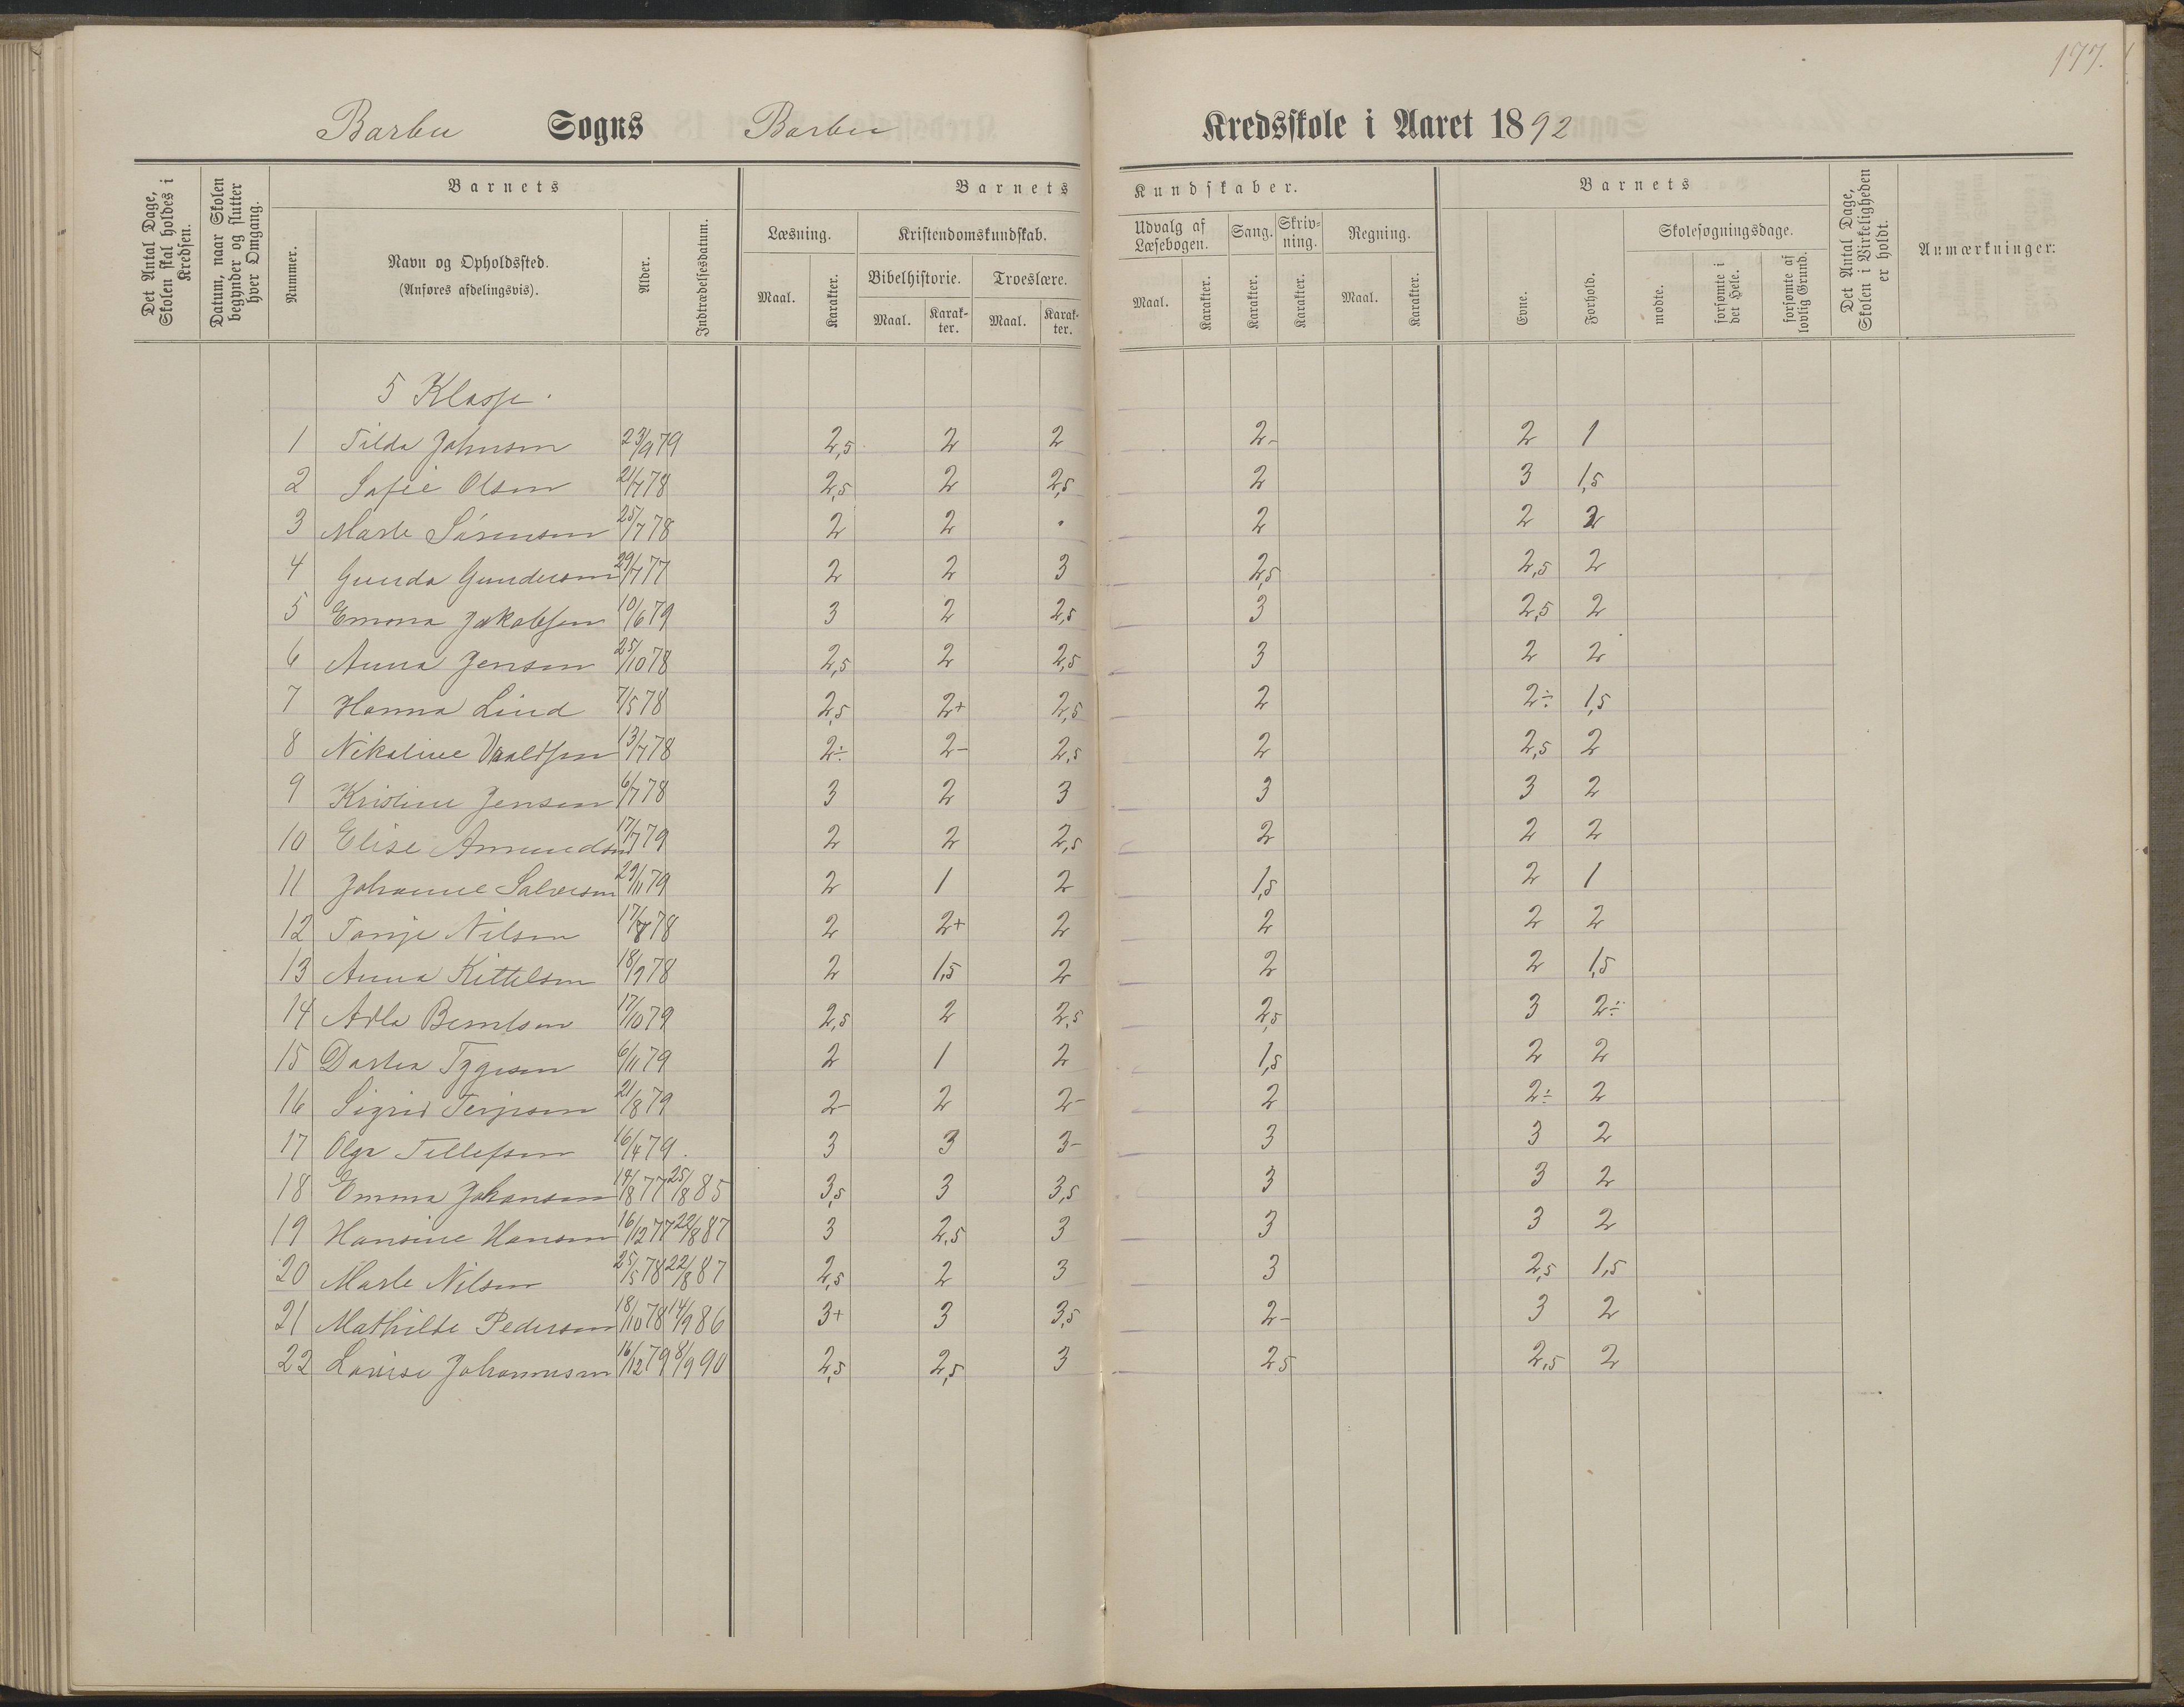 177.
Barbu Sogns Barbu Kredsskole i Aaret 1892
Det Antal Dage, Skolen skal holdes i Kredsen.
Datum, naar Skolen begynder og slutter hver Omgang.
Barnets
Nummer.
Navn og Opholdssted.
(Anføres afdelingsvis).
Alder.
Indtrædelsesdatum.
Barnets Kundskaber.
Læsning.
Maal. Karakter.
Kristendomskundskab.
Bibelhistorie. Troeslære.
Maal. Karakter. Maal. Karakter.
Udvalg af Læsebogen.
Maal. Karakter.
Sang.
Karakter.
Skrivning.
Karakter.
Regning.
Maal. Karakter.
Barnets
Evne.
Forhold.
Skolesøgningsdage.
mødte.
forsømte i det Hele.
forsømte af lovlig Grund.
Det Antal Dage, Skolen i Virkeligheden er holdt.
Anmærkninger.
5 Klasse.
1 Tilda Johnsen 23/9 79 2,5 2 2 2- 2 1
2 Sofie Olsen 21/7 78 2,5 2 2,5 2 3 1,5
3 Marte Sørensen 25/7 78 2 2 . 2 2 2
4 Gunda Gundersen 29/7 77 2 2 3 2,5 2,5 2
5 Emma Jakobsen 10/6 79 3 2 2,5 3 2,5 2
6 Anna Jensen 25/10 78 2,5 2 2,5 3 2 2
7 Hanna Lind 7/5 78 2,5 2+ 2,5 2 2÷ 1,5
8 Nikoline 13/7 78 2÷ 2- 2,5 2 2,5 2
9 Kristine Jensen 6/7 78 3 2 3 3 3 2
10 Elise Amundsen 17/7 79 2 2 2,5 2 2 2
11 Johanne Salvesen 29/11 79 2 1 2 1,5 2 1
12 Tonje Nilsen 17/8 78 2 2+ 2 2 2 2
13 Anna Kittelsen 18/9 78 2 1,5 2 2 2 1,5
14 Adla Berntsen 17/10 79 2,5 2 2,5 2,5 3 2÷
15 Dortea Tygesen 6/11 79 2 1 2 1,5 2 2
16 Sigrid Terjesen 21/8 79 2- 2 2- 2 2÷ 2
17 Olga Tellefsen 16/4 79. 3 3 3- 3 3 2
18 Emma Johansen 14/8 77 25/8 85 3,5 3 3,5 3 3 2
19 Hansine Hansen 16/12 77 22/8 87 3 2,5 3 3 3 2
20 Marte Nilsen 25/5 78 22/8 87 2,5 2 3 3 2,5 1,5
21 Mathilde Pedersen 18/10 78 14/9 86 3+ 3 3,5 2- 3 2
22 Lovise Johannesen 16/12 79 8/9 90 2,5 2,5 3 25 2,5 2